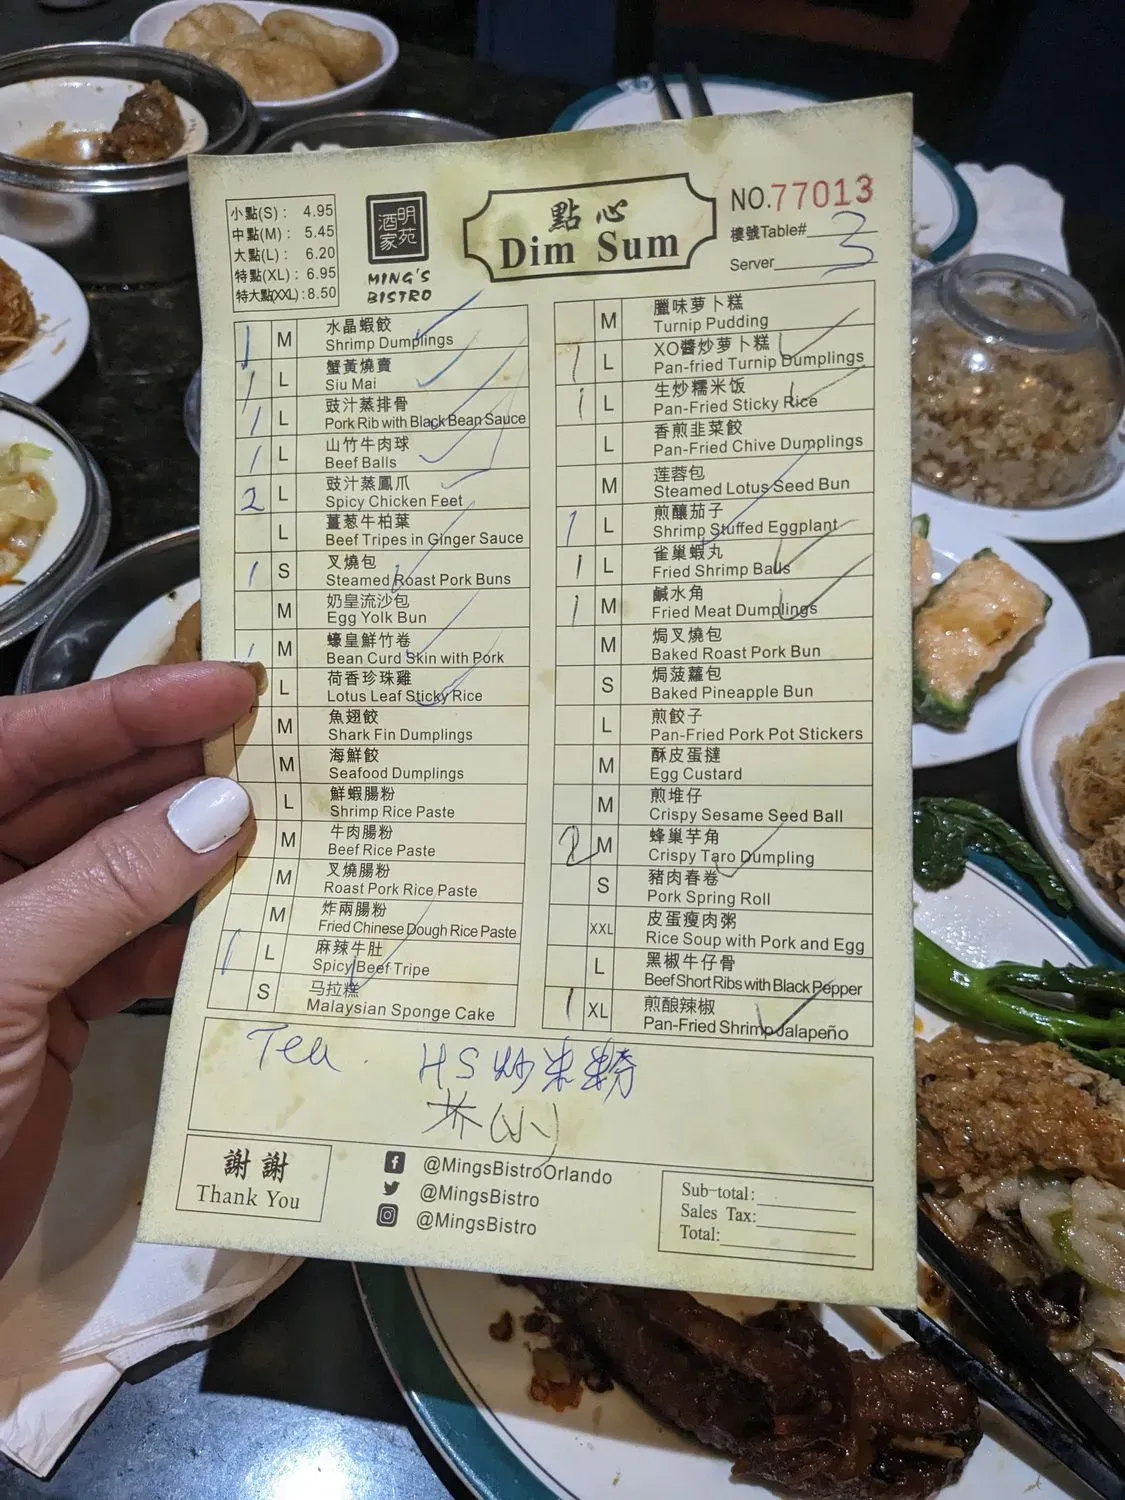 小點(S): 4.95
中點(M): 5.45
大點(L): 6.20
特點(XL): 6.95
特大點(XXL): 8.50
明苑酒家
MING'S
BISTRO
點心
Dim Sum
NO.77013
樓號Table# 3
Server
1 M 水晶蝦餃
Shrimp Dumplings
1 L 蟹黃燒賣
Siu Mai
1 L 豉汁蒸排骨
Pork Rib with Black Bean Sauce
1 L 山竹牛肉球
Beef Balls
2 L 豉汁蒸鳳爪
Spicy Chicken Feet
L 薑葱牛柏葉
Beef Tripes in Ginger Sauce
1 S 叉燒包
Steamed Roast Pork Buns
M 奶皇流沙包
Egg Yolk Bun
1 M 蠔皇鮮竹卷
Bean Curd Skin with Pork
L 荷香珍珠雞
Lotus Leaf Sticky Rice
M 魚翅餃
Shark Fin Dumplings
M 海鮮餃
Seafood Dumplings
L 鮮蝦腸粉
Shrimp Rice Paste
M 牛肉腸粉
Beef Rice Paste
M 叉燒腸粉
Roast Pork Rice Paste
M 炸兩腸粉
Fried Chinese Dough Rice Paste
1 L 麻辣牛肚
Spicy Beef Tripe
S 马拉糕
Malaysian Sponge Cake
M 臘味萝卜糕
Turnip Pudding
1 L XO醬炒萝卜糕
Pan-fried Turnip Dumplings
1 L 生炒糯米饭
Pan-Fried Sticky Rice
L 香煎韭菜餃
Pan-Fried Chive Dumplings
M 莲蓉包
Steamed Lotus Seed Bun
1 L 煎釀茄子
Shrimp Stuffed Eggplant
1 L 雀巢蝦丸
Fried Shrimp Balls
1 M 鹹水角
Fried Meat Dumplings
M 焗叉燒包
Baked Roast Pork Bun
S 焗菠蘿包
Baked Pineapple Bun
L 煎餃子
Pan-Fried Pork Pot Stickers
M 酥皮蛋撻
Egg Custard
M 煎堆仔
Crispy Sesame Seed Ball
2 M 蜂巢芋角
Crispy Taro Dumpling
S 豬肉春卷
Pork Spring Roll
XXL 皮蛋瘦肉粥
Rice Soup with Pork and Egg
L 黑椒牛仔骨
Beef Short Ribs with Black Pepper
1 XL 煎酿辣椒
Pan-Fried Shrimp Jalapeño
Tea HS炒米粉
(小)
謝謝
Thank You
@MingsBistroOrlando
@MingsBistro
@MingsBistro
Sub-total:
Sales Tax:
Total: